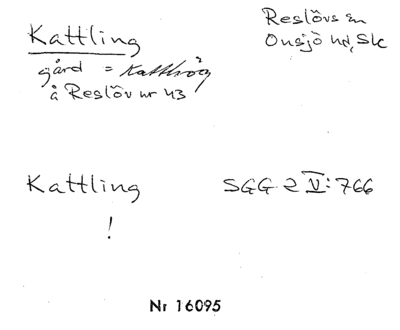 Kattling
Reslövs sn
Onsjö hd, Sk
gård = Katthög
å Reslöv nr 43
Kattling
SGG 2 V: 766
!
Nr 16095